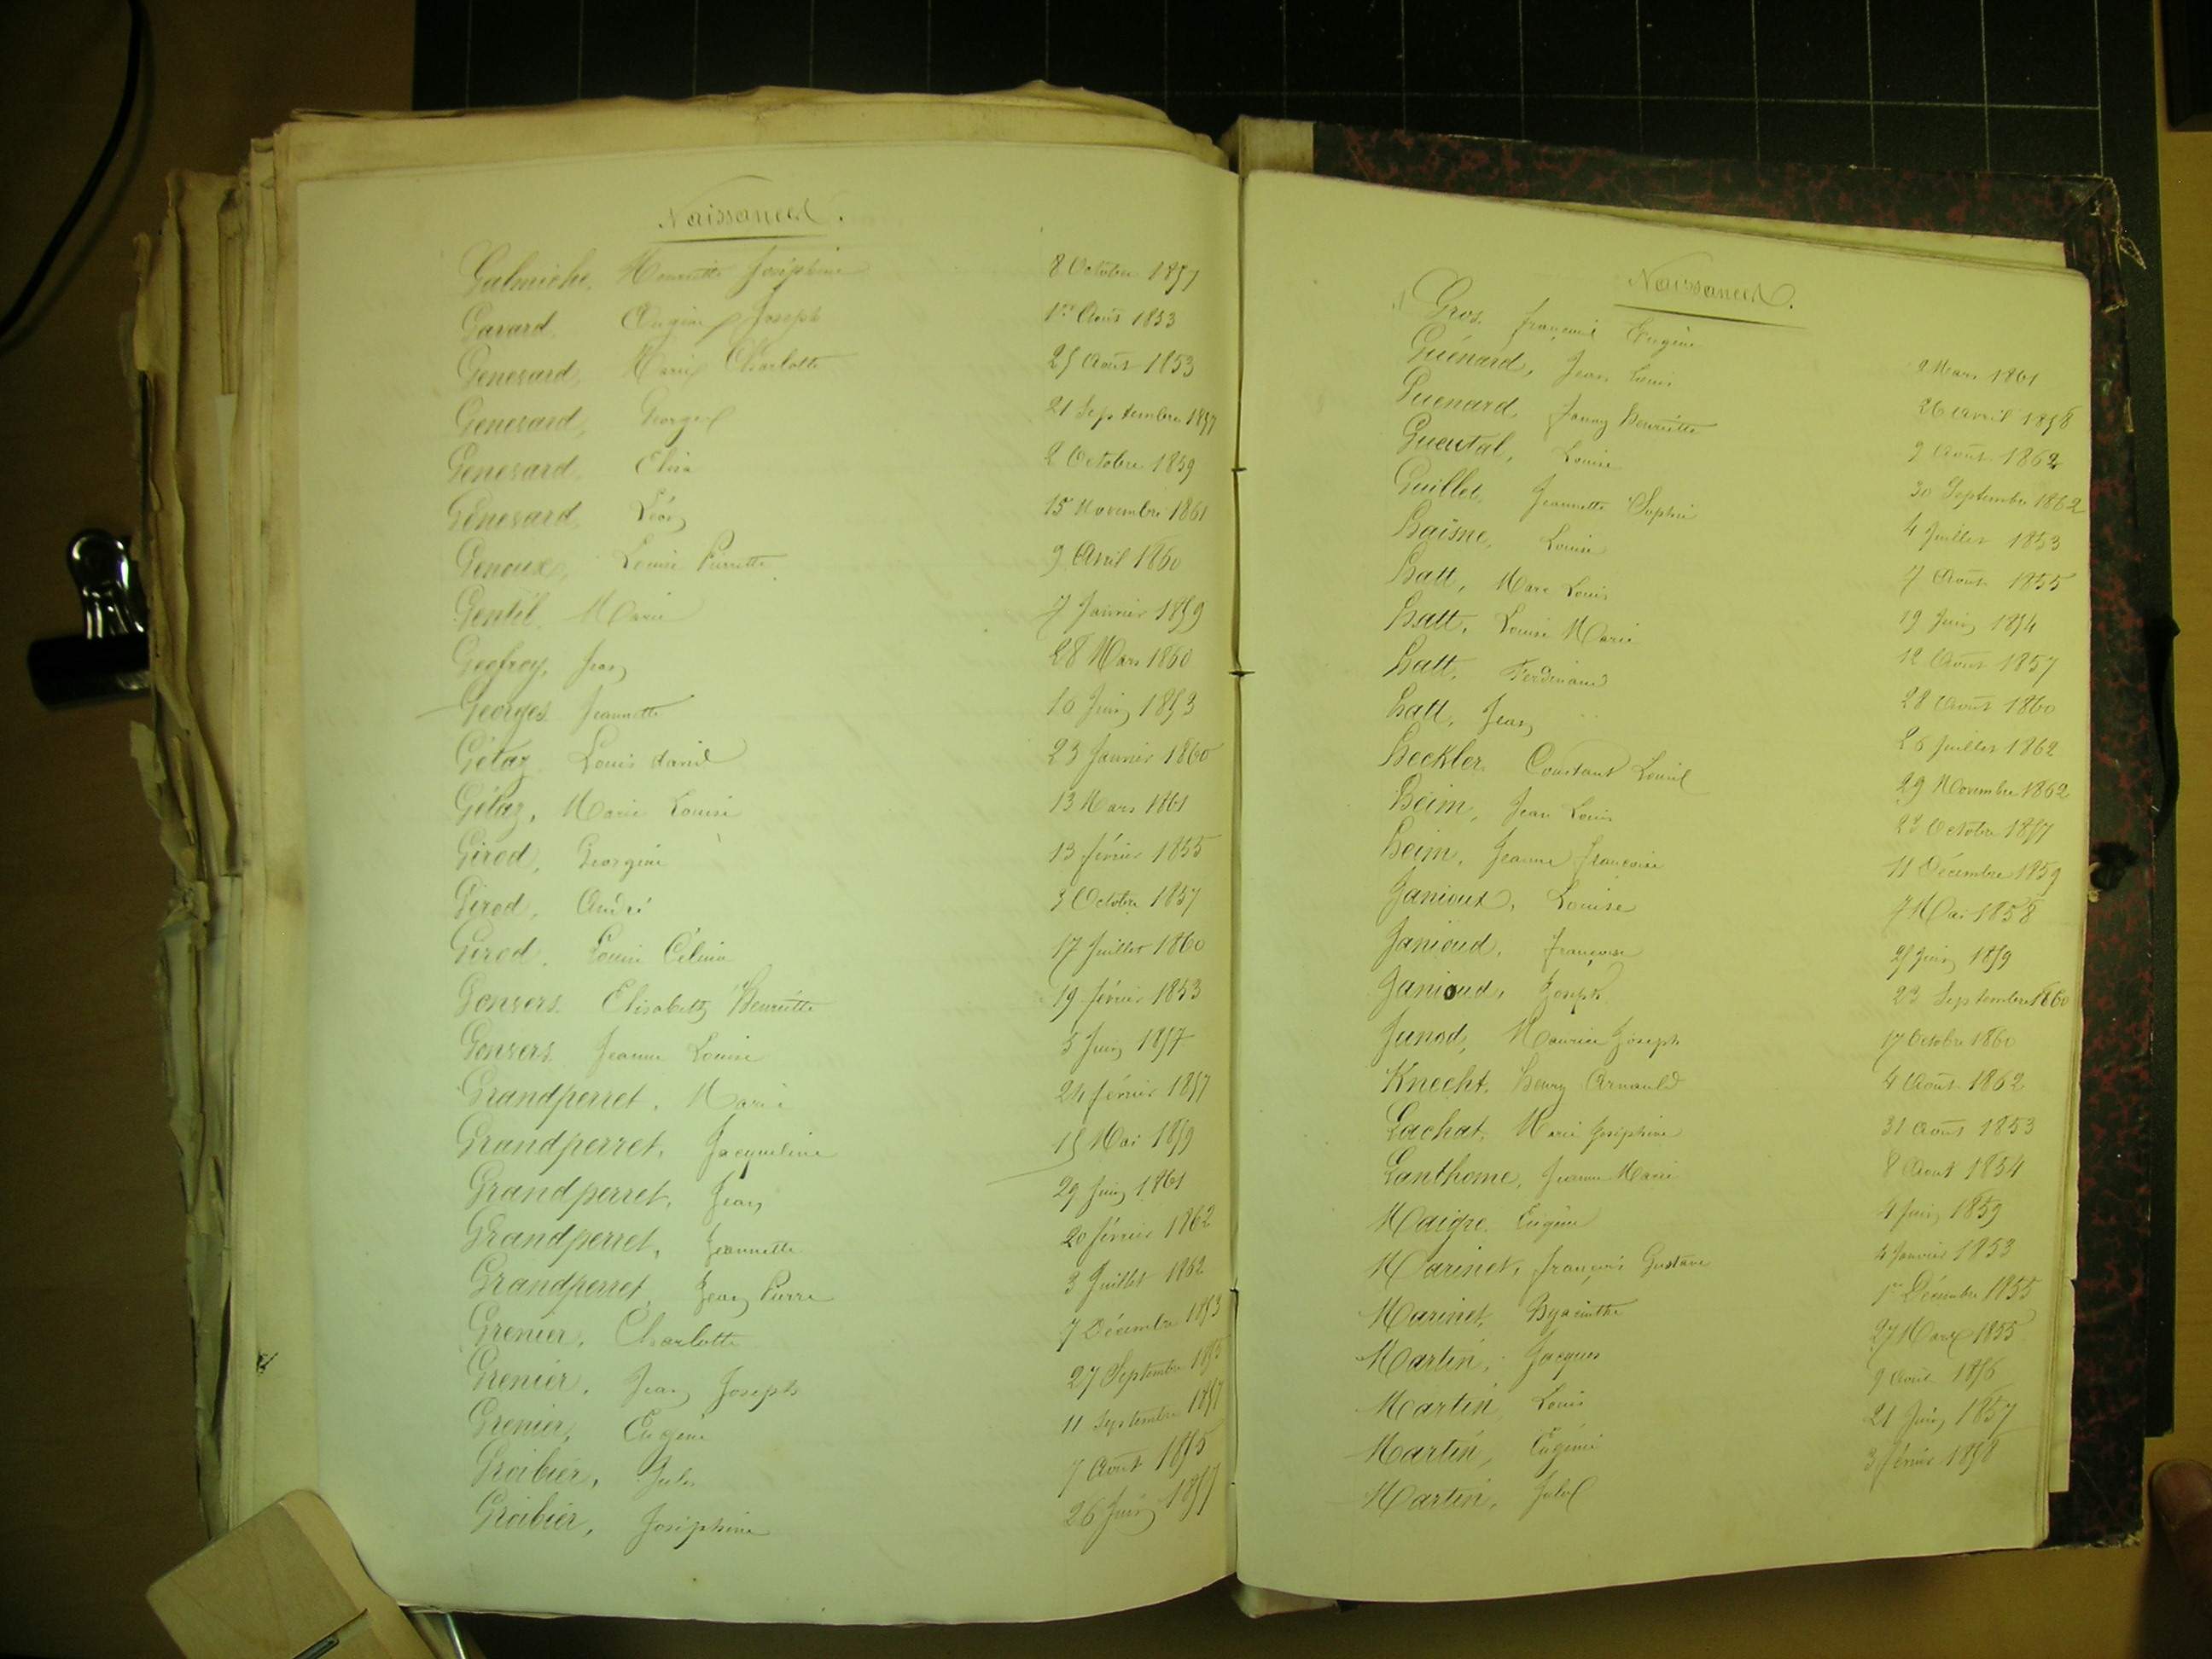 Naissances.
Galmiche, Henriette Joséphine 8 Octobre 1857
Gavard. Eugène Joseph 1er Août 1853
Genesard, Marie Charlotte 25 Août 1853
Genesard, Georges 21 Septembre 1857
Genesard, Elisa 2 Octobre 1859
Genesard, Léon 15 Novembre 1861
Genoux, Louise Pierrette 9 Avril 1860
Gentil. Marie 7 Janvier 1859
Geofroy, Jean 28 Mars 1860
Georges. Jeannette 16 Juin 1853
Gétaz Louis David 23 Janvier 1860
Gétaz, Marie Louise 13 Mars 1861
Girod, Georgine 13 février 1855
Girod, André 3 Octobre 1857
Girod. Louise Célina 17 Juillet 1860
Gonsers. Elisabeth Henriette 19 février 1853
Gonsers. Jeanne Louise 5 Juin 1857
Grandperret. Marie 24 février 1857
Grandperret, Jacqueline 15 Mai 1859
Grandperret, Jean 29 Juin 1861
Grandperret, Jeannette 20 février 1862
Grandperret, Jean Pierre 3 Juillet 1862
Grenier, Charlotte 7 Décembre 1853
Grenier, Jean Joseph 27 Septembre 1855
Grenier, Eugène 11 Septembre 1857
Groibier, Jules 7 Août 1855
Groibier, Joséphine 26 Juin 1857
Naissances.
Gros. François Eugène 2 Mars 1861
Guénard, Jean Louis 26 Avril 1858
Guenard, Fanny Henriette 9 Août 1862
Guental, Louise 30 Septembre 1862
Guillet, Jeannette Sophie 4 Juillet 1853
Haisne, Louise 7 Août 1855
Hatt, Marc Louis 19 Juin 1854
Hatt, Louise Marie 12 Août 1857
Hatt, Ferdinand 28 Août 1860
Hatt, Jean 26 Juillet 1862
Heckler. Constant Louis 29 Novembre 1862
Heim, Jean Louis 23 Octobre 1857
Heim, Jeanne Françoise 11 Décembre 1859
Janioux, Louise 7 Mai 1858
Janioud, Françoise 25 Juin 1859
Janioud, Joseph 23 Septembre 1860
Junod, Maurice Joseph 17 Octobre 1860
Knecht, Henry Arnauld 4 Août 1862
Lachat, Marie Joséphine 31 Août 1853
Lanthome, Jeanne Marie 8 Août 1854
Maigre. Eugène 4 Juin 1859
Marinet, François Gustave 4 Janvier 1853
Marinet, Hyacinthe 1er Décembre 1855
Martin, Jacques 27 Mars 1855
Martin, Louis 9 Août 1856
Martin, Eugénie 21 Juin 1857
Martin, Jules 3 février 1858